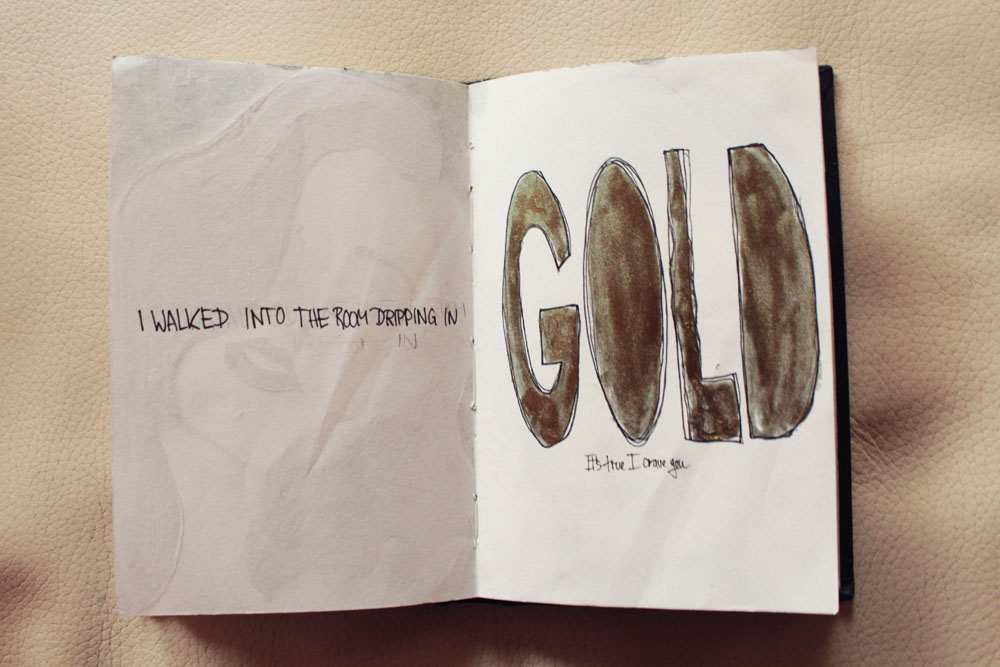 I WALKED INTO THE ROOM DRIPPING IN
IN
GOLD
It's true I crave you